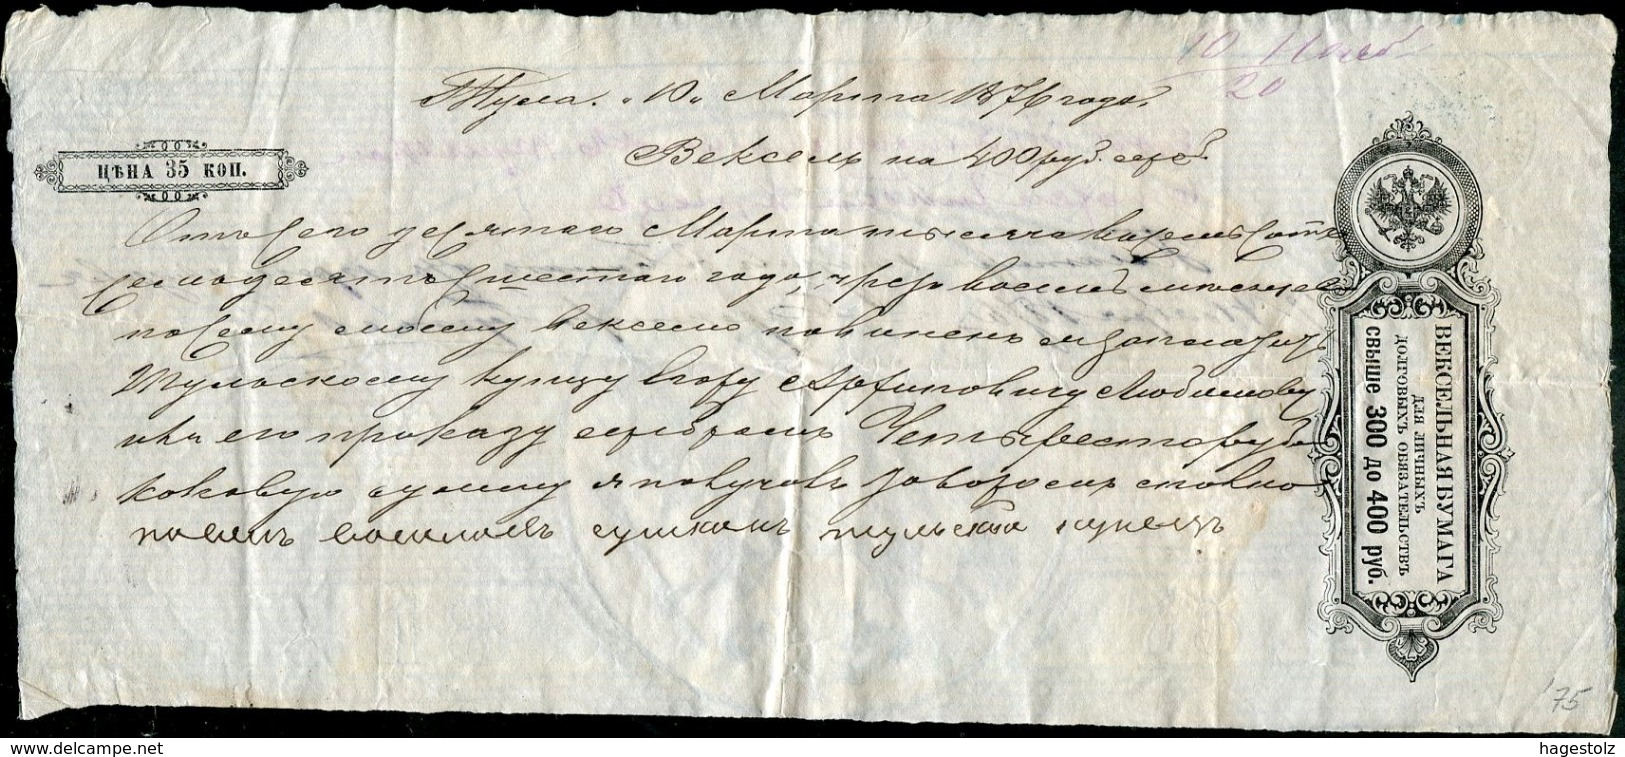 10 Нояб
20
Тула. "10" Марта 1876 года.
Вексель на 400 руб. сереб.
ЦѢНА 35 КОП.
Отъ сего десятаго Марта тысяча восемь сотъ
семьдесятъ шестаго года, чрезъ восемь месяцев
по сему моему векселю повиненъ я заплатить
Тульскому купцу Егору Архиповичу Любимову
или его приказу серебромъ Четыреста руб.
каковую сумму я получилъ товаромъ сполна
тульскай купецъ
ВЕКСЕЛЬНАЯ БУМАГА
ДЛЯ ЛИЧНЫХЪ
ДОЛГОВЫХЪ ОБЯЗАТЕЛЬСТВЪ
СВЫШЕ 300 ДО 400 РУБ.
75
www.delcampe.net
hagestolz